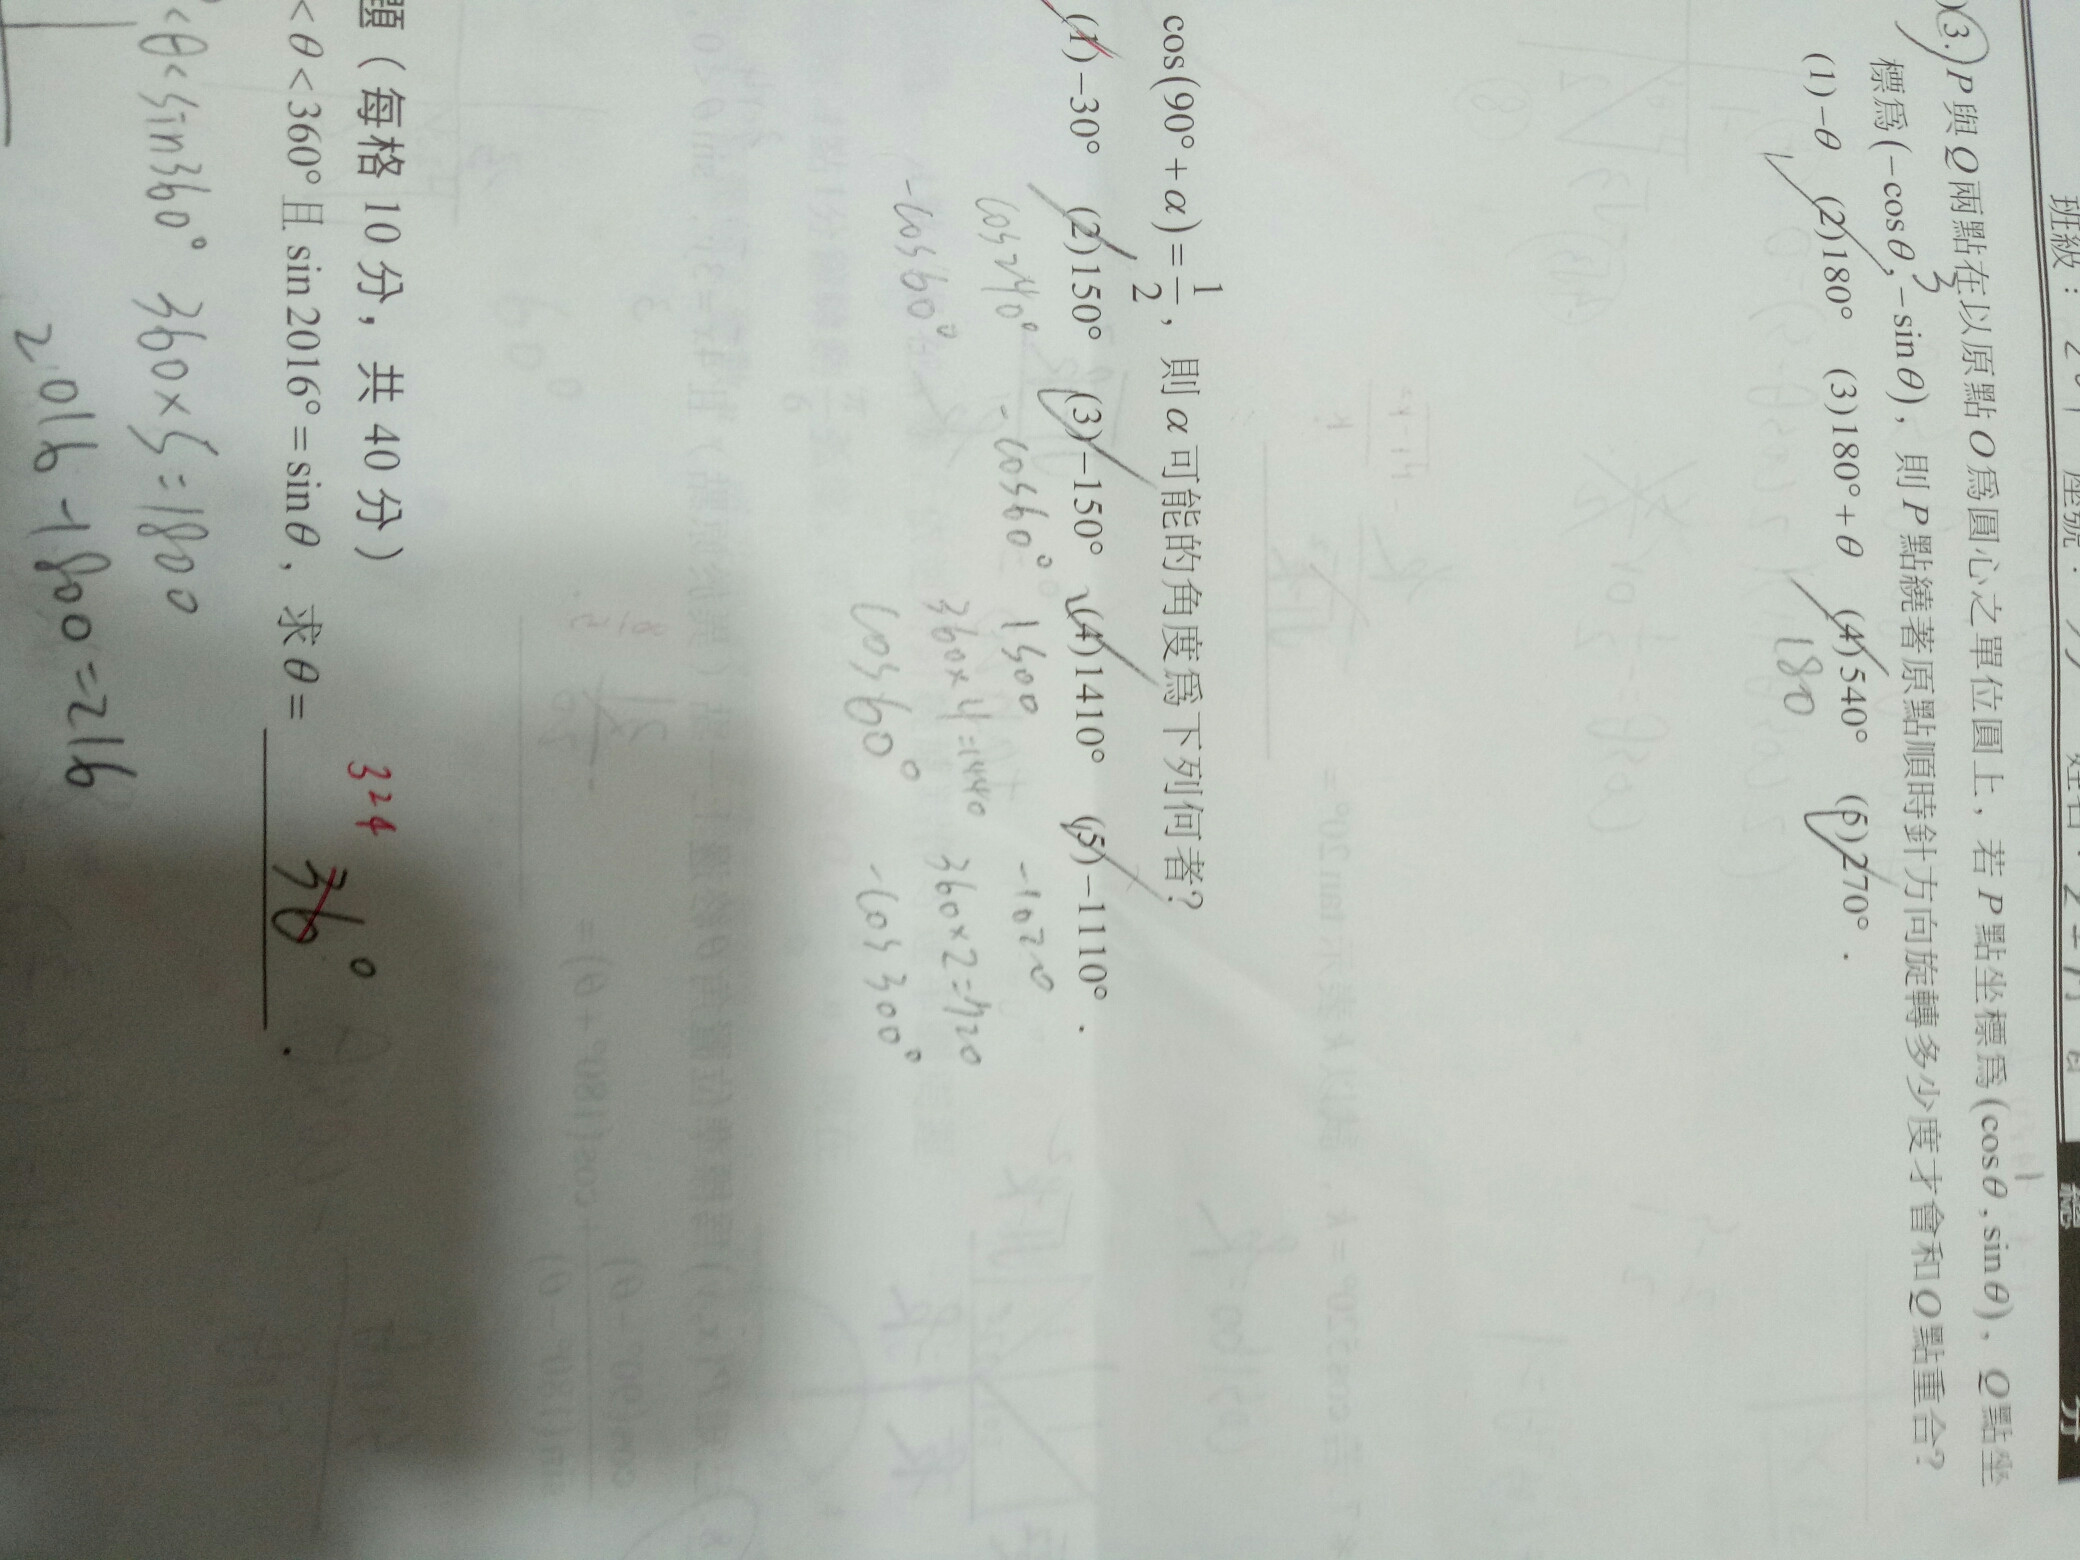 班級： 201 座號： 姓名：
總 分
3. P與Q兩點在以原點O為圓心之單位圓上，若P點坐標為(cosθ, sinθ)、Q點坐
標為(-cosθ, -sinθ)，則P點繞著原點順時針方向旋轉多少度才會和Q點重合？
(1)-θ (2)180° (3)180°+θ (4)540° (5)270°．
180
cos(90°+α)=1/2，則α可能的角度為下列何者？
(1)-30° (2)150° (3)-150° (4)1410° (5)-1110°．
cos240° -cos60° 1500 -1020
-cos60° 360×4=1440 360×2=720
cos60° -cos300°
題（每格10分，共40分）
324
<θ<360°且sin2016°=sinθ，求θ= 36°．
<θ<sin360° 360×5=1800
2016-1800=216